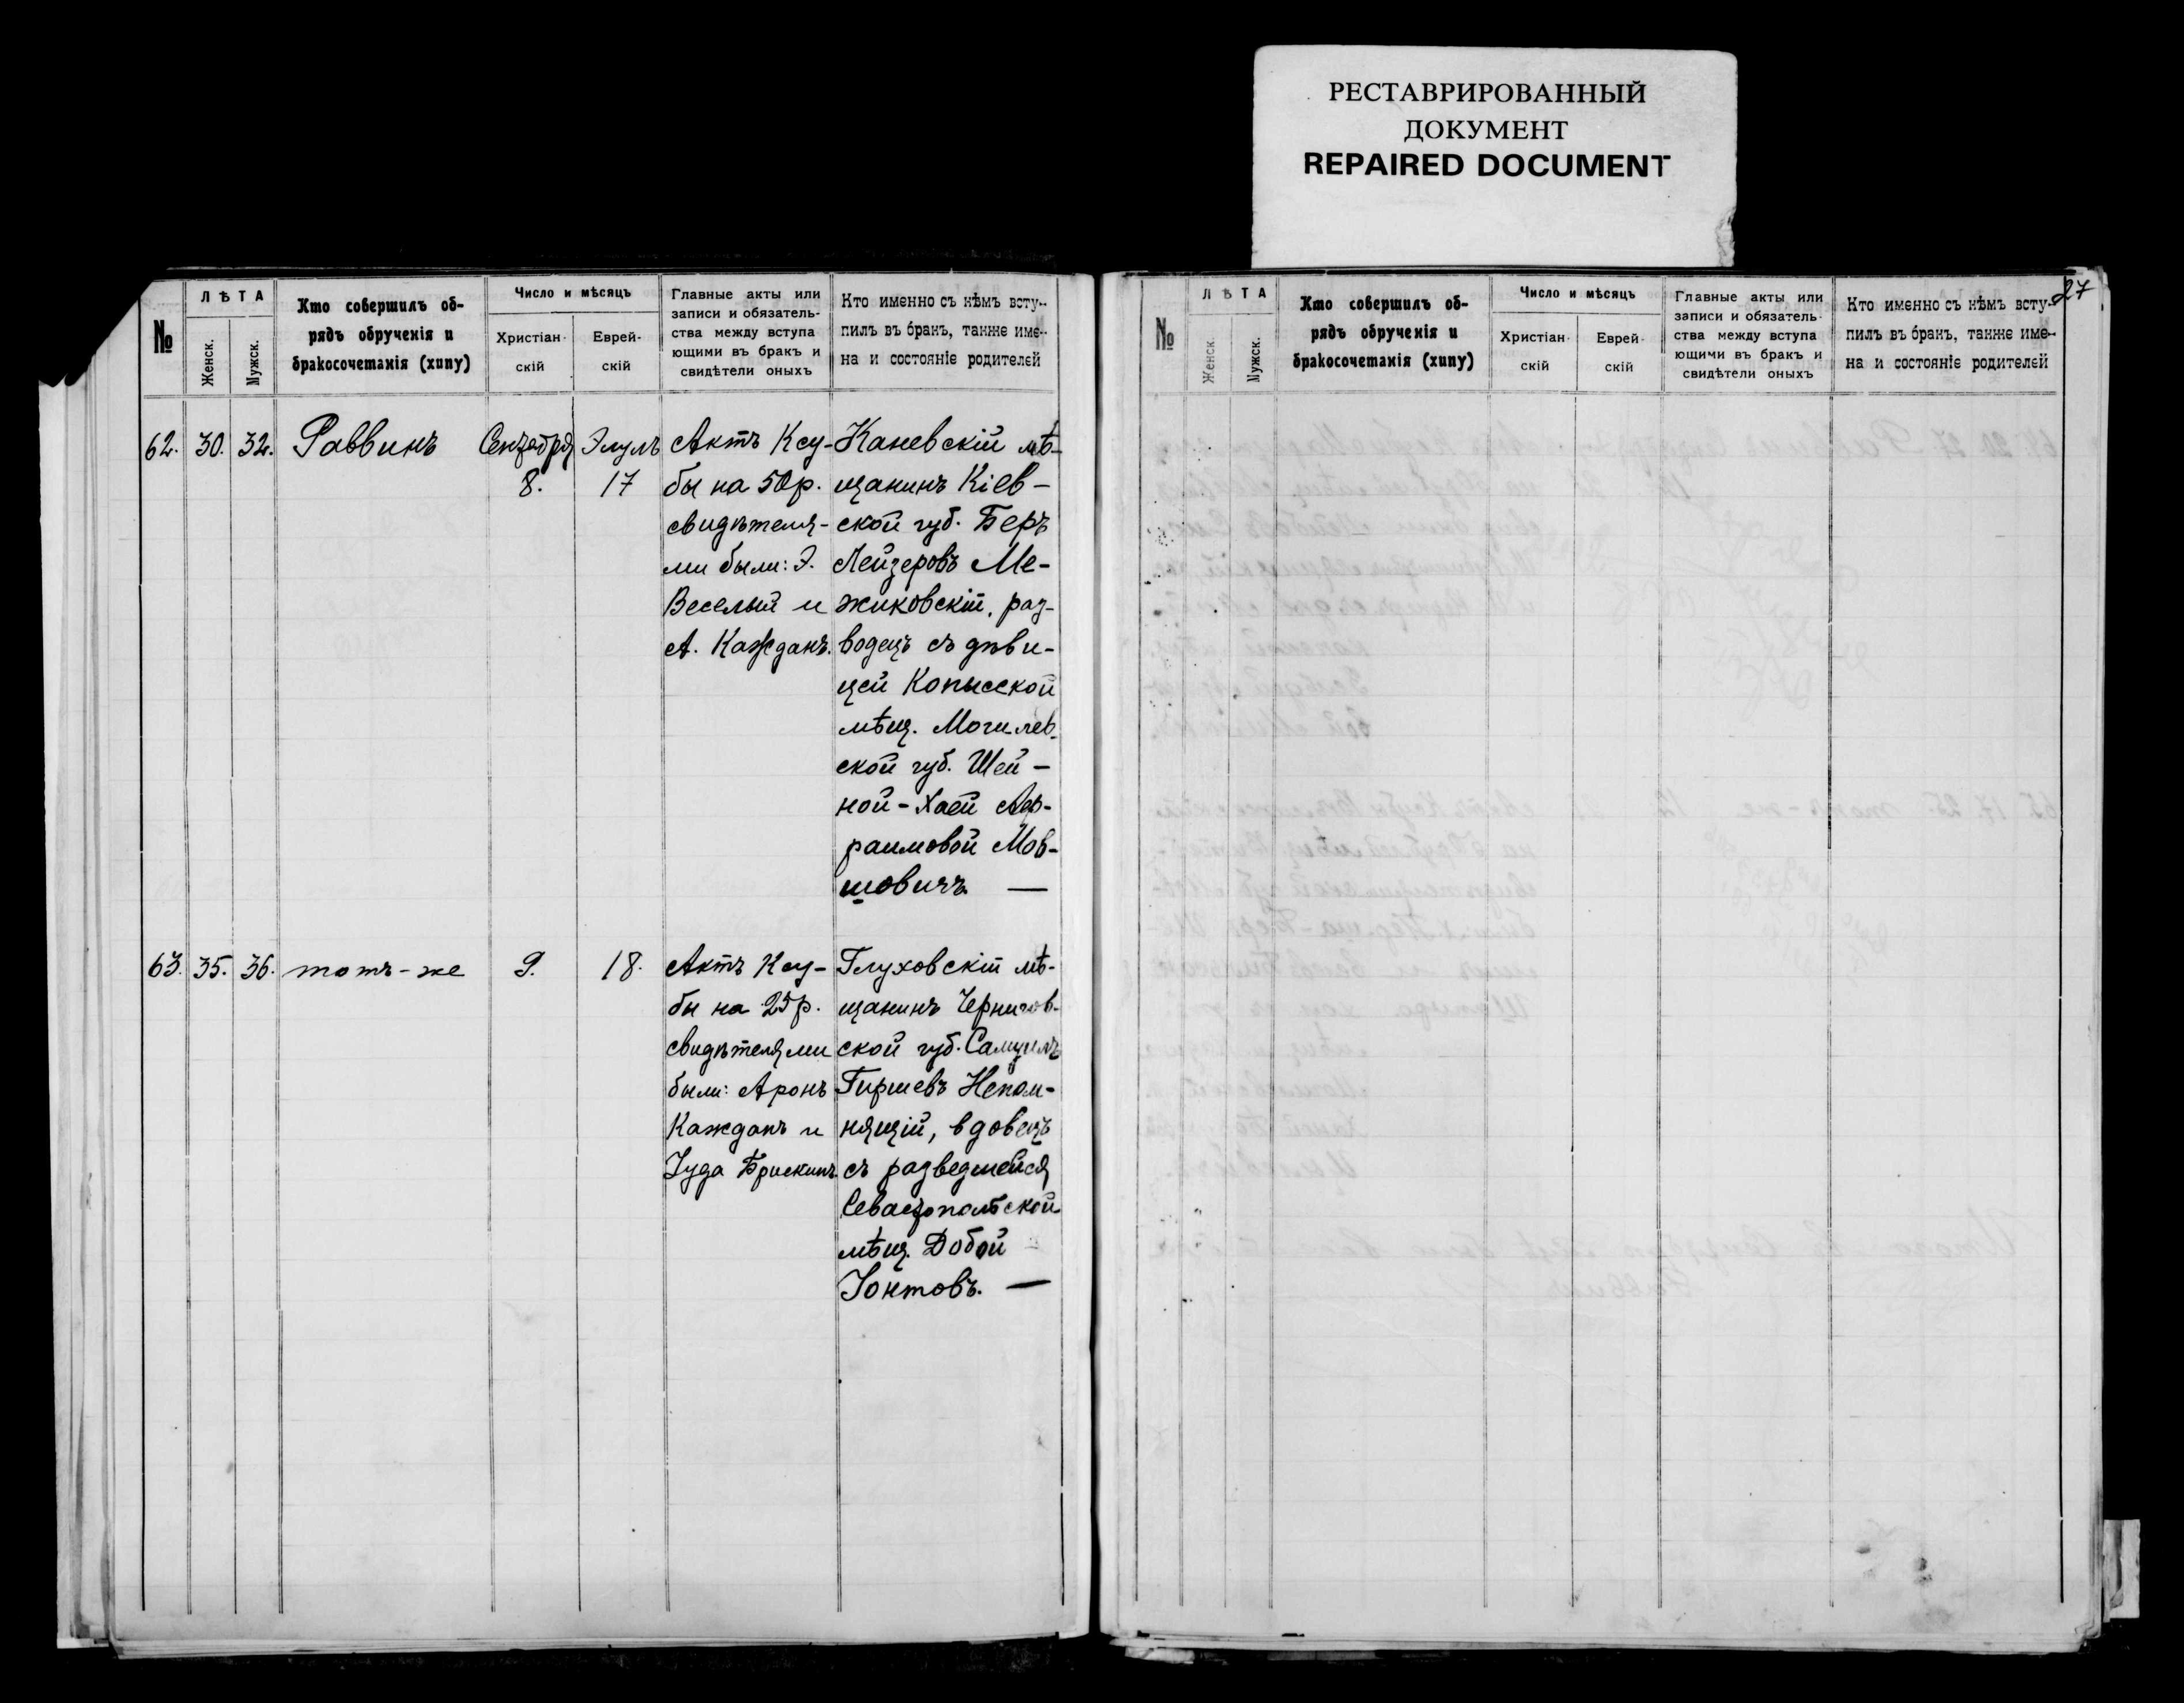 РЕСТАВРИРОВАННЫЙ
ДОКУМЕНТ
REPAIRED DOCUMENT
№
ЛѢТА
Женск.
Мужск.
Кто совершилъ об-
рядъ обрученія и
бракосочетанія (хипу)
Число и мѣсяцъ
Христіан-
скій
Еврей-
скій
Главные акты или
записи и обязатель-
ства между вступа
ющими въ бракъ и
свидѣтели оныхъ
Кто именно съ кѣмъ всту-
пилъ въ бракъ, также име-
на и состояніе родителей
62. 30. 32. Раввинъ
Сентября
8.
Элулъ
17
Актъ Ксу-
бы на 50 р.
свидѣтеля-
ми были: Э.
Веселый и
А. Кажданъ.
Каневскій мѣ-
щанинъ Кіев-
ской губ. Беръ
Лейзеровъ Ме-
жиковскій, раз-
водецъ съ дѣви-
цей Копысской
мѣщ. Могилев-
ской губ. Шей-
ной-Хаей Аф-
раимовой Мов-
шовичъ. —
63. 35. 36. тотъ-же 9. 18.
Актъ Ксу-
бы на 25 р.
свидѣтелями
были: Аронъ
Кажданъ и
Іуда Брискинъ
Глуховскій мѣ-
щанинъ Чернигов-
ской губ. Самуилъ
Гиршевъ Непом-
нящій, вдовецъ
съ разведшейся
Севастопольской
мѣщ. Добой
Іонтовъ. —
27
№
ЛѢТА
Женск.
Мужск.
Кто совершилъ об-
рядъ обрученія и
бракосочетанія (хипу)
Число и мѣсяцъ
Христіан-
скій
Еврей-
скій
Главные акты или
записи и обязатель-
ства между вступа
ющими въ бракъ и
свидѣтели оныхъ
Кто именно съ кѣмъ всту-
пилъ въ бракъ, также име-
на и состояніе родителей